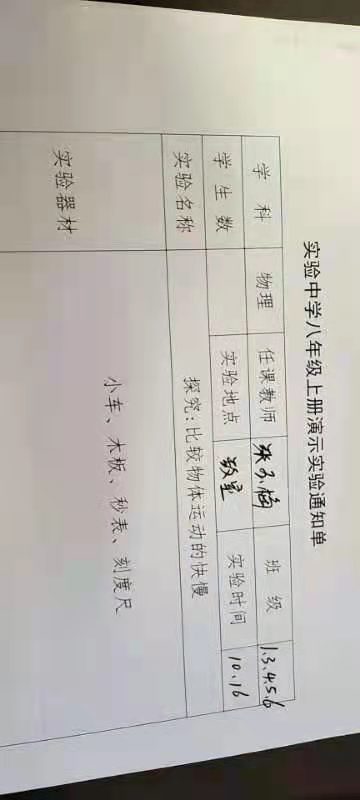 实验中学八年级上册演示实验通知单
学科 物理 任课教师 张冬梅 班级 1.3.4.5.6
学生数 实验地点 教室 实验时间 10.16
实验名称 探究:比较物体运动的快慢
实验器材 小车、木板、秒表、刻度尺